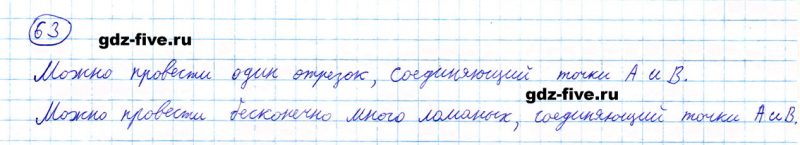 63
gdz-five.ru
Можно провести один отрезок, соединяющий точки А и В.
gdz-five.ru
Можно провести бесконечно много ломаных, соединяющий точки А и В.